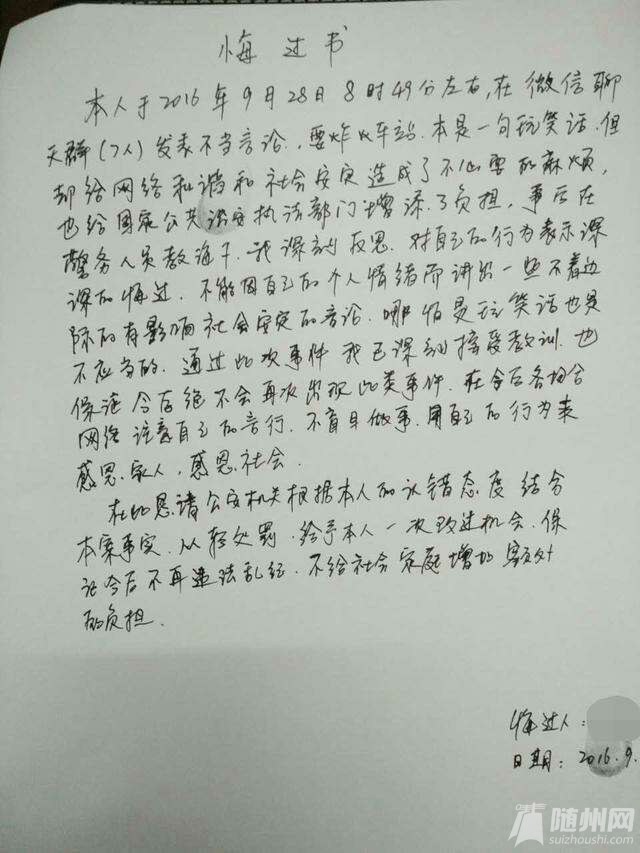 悔过书
本人于2016年9月28日8时49分左右,在微信聊
天群(7人)发表不当言论,要炸火车站.本是一句玩笑话.但
却给网络和谐和社会安定造成了不必要的麻烦,
也给国家公共治安执法部门增添了负担,事后在
警务人员教诲下.我深刻反思.对自己的行为表示深
深的悔过.不能因自己的个人情绪而讲出一些不着边
际的有影响社会安定的言论.哪怕是玩笑话也是
不应当的.通过此次事件我已深刻接受教训.也
保证今后绝不会再次出现此类事件.在今后各场合
网络注意自己的言行.不盲目做事.用自己的行为来
感恩家人,感恩社会.
在此恳请公安机关根据本人的认错态度结合
本案事实.从轻处罚.给予本人一次改过机会.保
证今后不再违法乱纪.不给社会家庭增加额外
的负担.
悔过人:
日期:2016.9.
随州网
suizhoushi.com